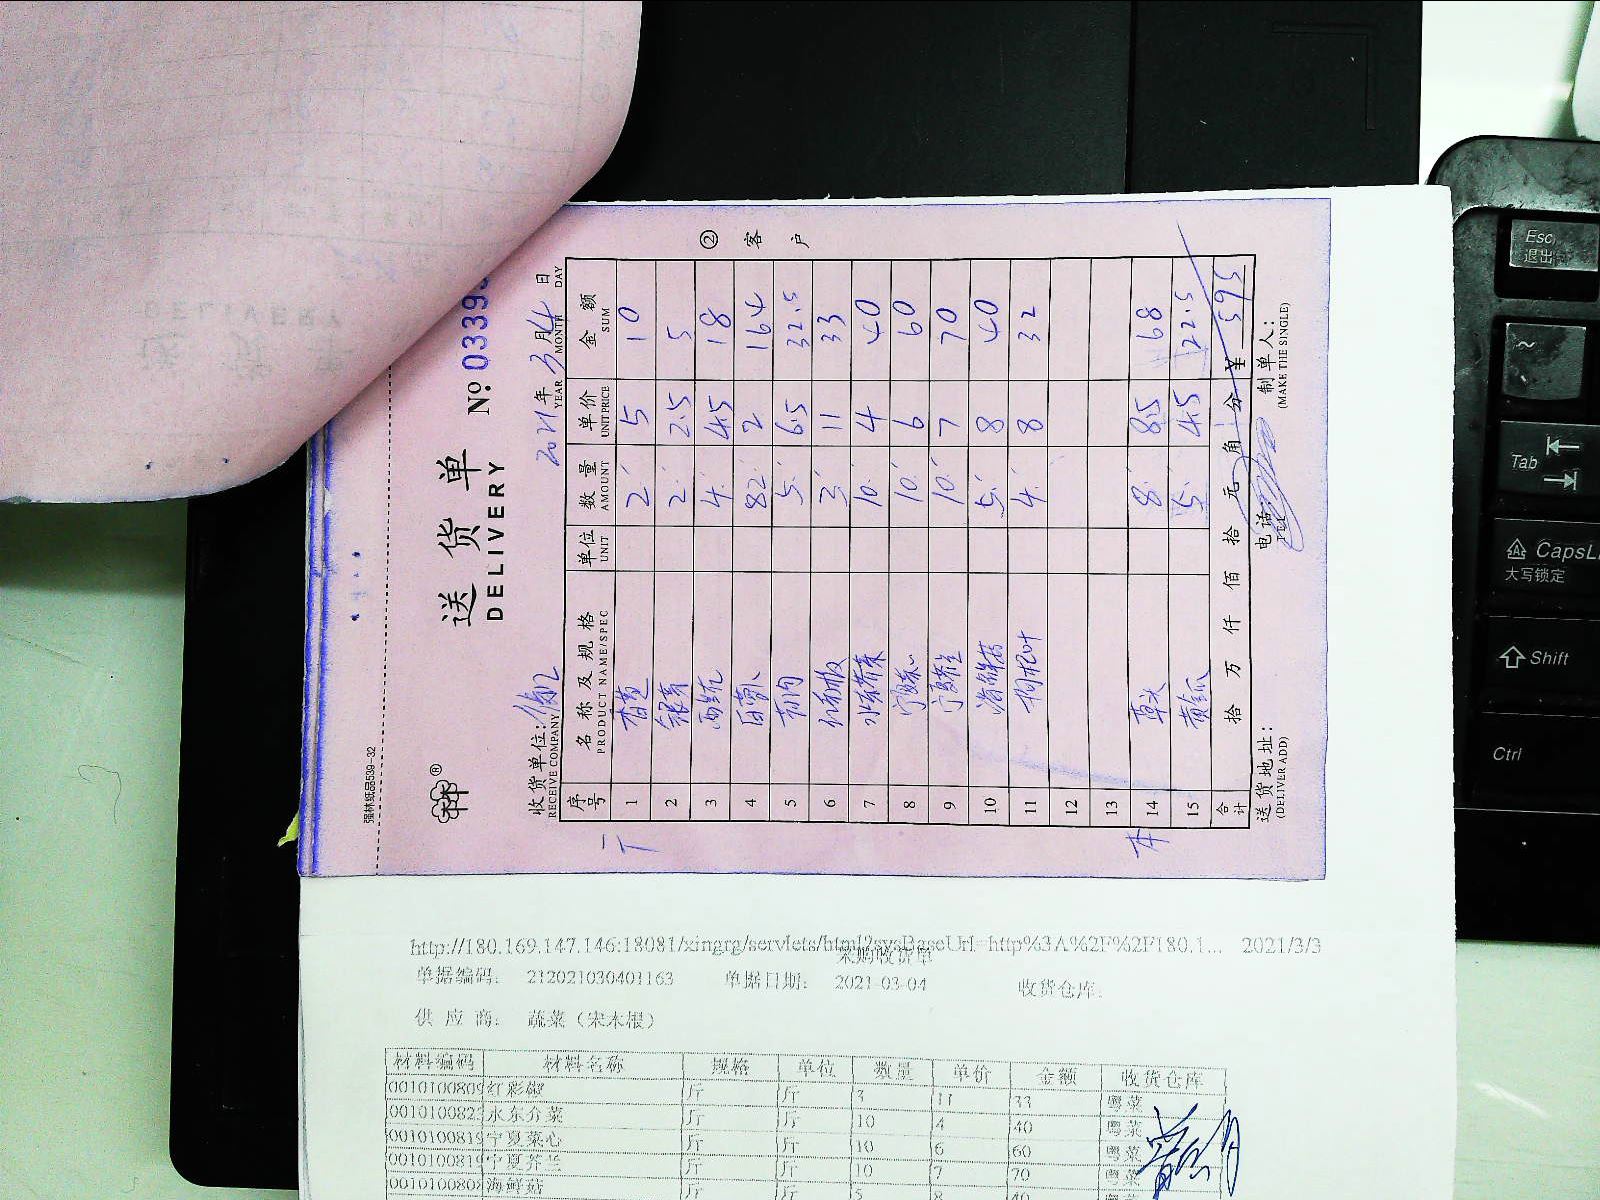 强林纸品539-32
送货单 № 0339
DELIVERY
收货单位: 2021年3月4日
RECEIVE COMPANY YEAR MONTH DAY
序号 名称及规格 单位 数量 单价 金额
PRODUCT NAME/SPEC UNIT AMOUNT UNIT PRICE SUM
1 香芹 2 5 10
2 银芽 2 2.5 5
3 西芹 4 4.5 18
4 白萝卜 82 2 164
5 5 6.5 32.5
6 红彩椒 3 11 33
7 水东芥菜 10 4 40
8 宁夏菜心 10 6 60
9 宁夏芥兰 10 7 70
10 海鲜菇 5 8 40
11 枸杞叶 4 8 32
12
13
14 草头 8 8.5 68
15 黄瓜 5 4.5 22.5
合计 拾 万 仟 佰 拾 元 角 分 ¥ 595
送货地址: 电话 制单人:
(DELIVER ADD) TEL (MAKE THE SINGLE)
② 客户
http://180.169.147.146:18081/xingrg/servlets/html?sysBaseUrl=http%3A%2F%2F180.1... 2021/3/3
采购收货单
单据编码: 212021030401163 单据日期: 2021-03-04 收货仓库:
供应商: 蔬菜（宋木根）
材料编码 材料名称 规格 单位 数量 单价 金额 收货仓库
0010100809 红彩椒 斤 斤 3 11 33 粤菜
001010082 水东芥菜 斤 斤 10 4 40 粤菜
0010100819 宁夏菜心 斤 斤 10 6 60 粤菜
0010100819 宁夏芥兰 斤 斤 10 7 70 粤菜
0010100808 海鲜菇 斤 斤 5 8 40 粤菜
Esc
退出
~
Tab
CapsL
大写锁定
Shift
Ctrl